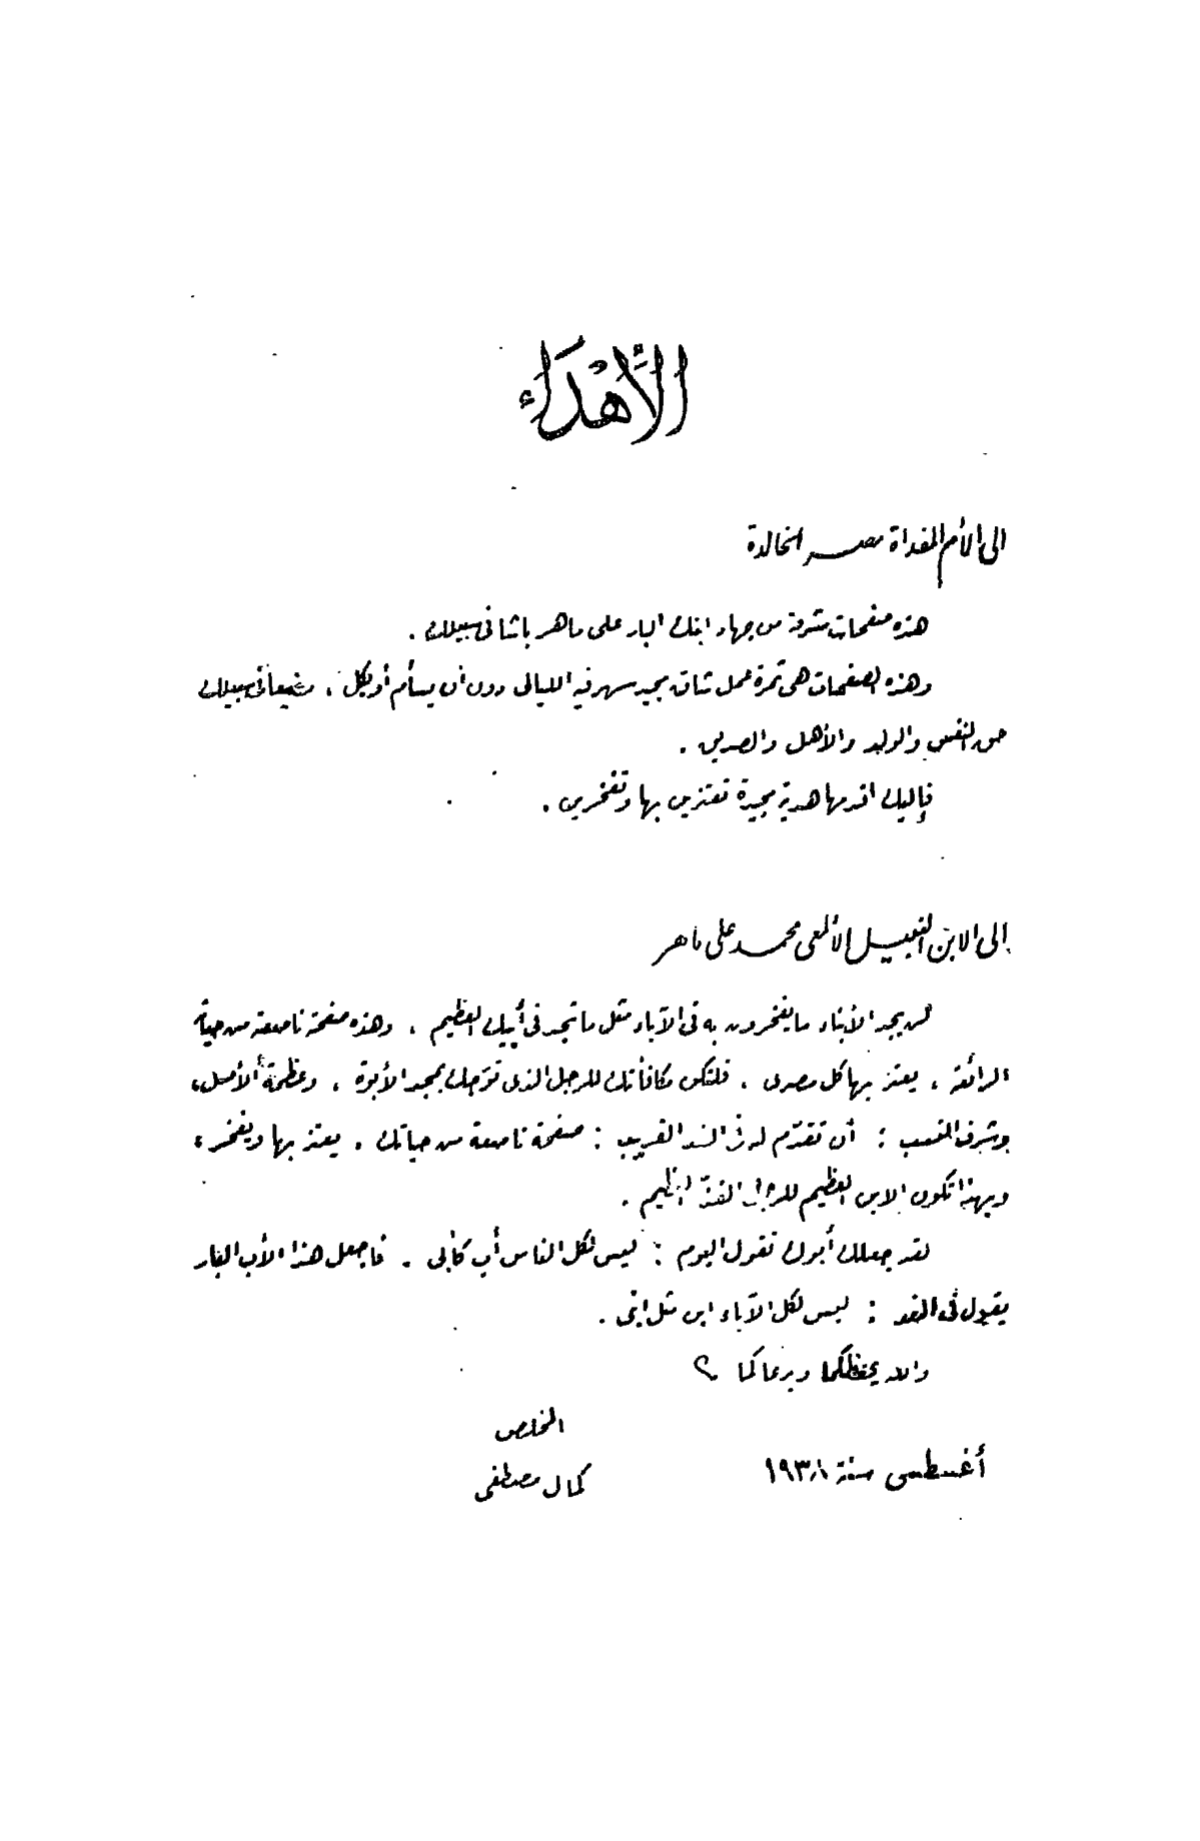 الأهداء
الى الأم المفداة مصر الخالدة
هذه صفحات مشرقة من جهاد ابنك البار على ماهر باشا فى سبيلك .
وهذه الصفحات هى ثمرة عمل شاق مجيد سهر فيه الليالى دون أن يسأم أو يكل ، مضيعا فى سبيلك
حق النفس والولد والأهل والصديق .
فإليك اقدمها هدية مجيدة تعتزين بها وتفخرين .
الى الابن النبيل الألمعى محمد على ماهر
لن يجد الأبناء ما يفخرون به فى الآباء مثل ما تجد فى أبيك العظيم ، وهذه صفحة ناصعة من حياته
الرائعة ، يعتز بها كل مصرى ، فلتكن مكافأتك للرجل الذى توّجك بمجد الأبوة ، وعظمة الأصل ،
وشرف النسب : أن تقدّم له فى الغد القريب : صفحة ناصعة من حياتك ، يعتز بها ويفخر ،
وبهذا تكون الابن العظيم للرجل الفذّ العظيم .
لقد جعلك أبوك تقول اليوم : ليس لكل الناس أب كأبى . فاجعل هذا الأب البار
يقول فى الغد : ليس لكل الآباء ابن مثل ابنى .
والله يحفظكما ويرعاكما
المخلص
أغسطس سنة ١٩٣٨ كمال مصطفى